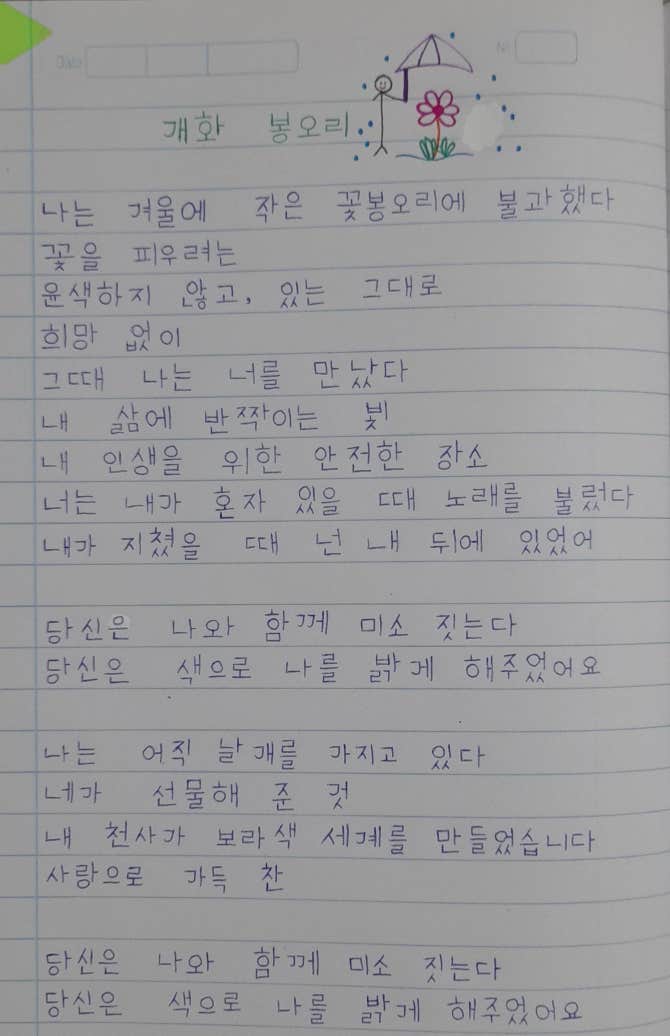 Date
No
개화 봉오리
나는 겨울에 작은 꽃봉오리에 불과했다
꽃을 피우려는
윤색하지 않고, 있는 그대로
희망 없이
그때 나는 너를 만났다
내 삶에 반짝이는 빛
내 인생을 위한 안전한 장소
너는 내가 혼자 있을 때 노래를 불렀다
내가 지쳤을 때 넌 내 뒤에 있었어
당신은 나와 함께 미소 짓는다
당신은 색으로 나를 밝게 해주었어요
나는 어직 날개를 가지고 있다
네가 선물해 준 것
내 천사가 보라색 세계를 만들었습니다
사랑으로 가득 찬
당신은 나와 함께 미소 짓는다
당신은 색으로 나를 밝게 해주었어요